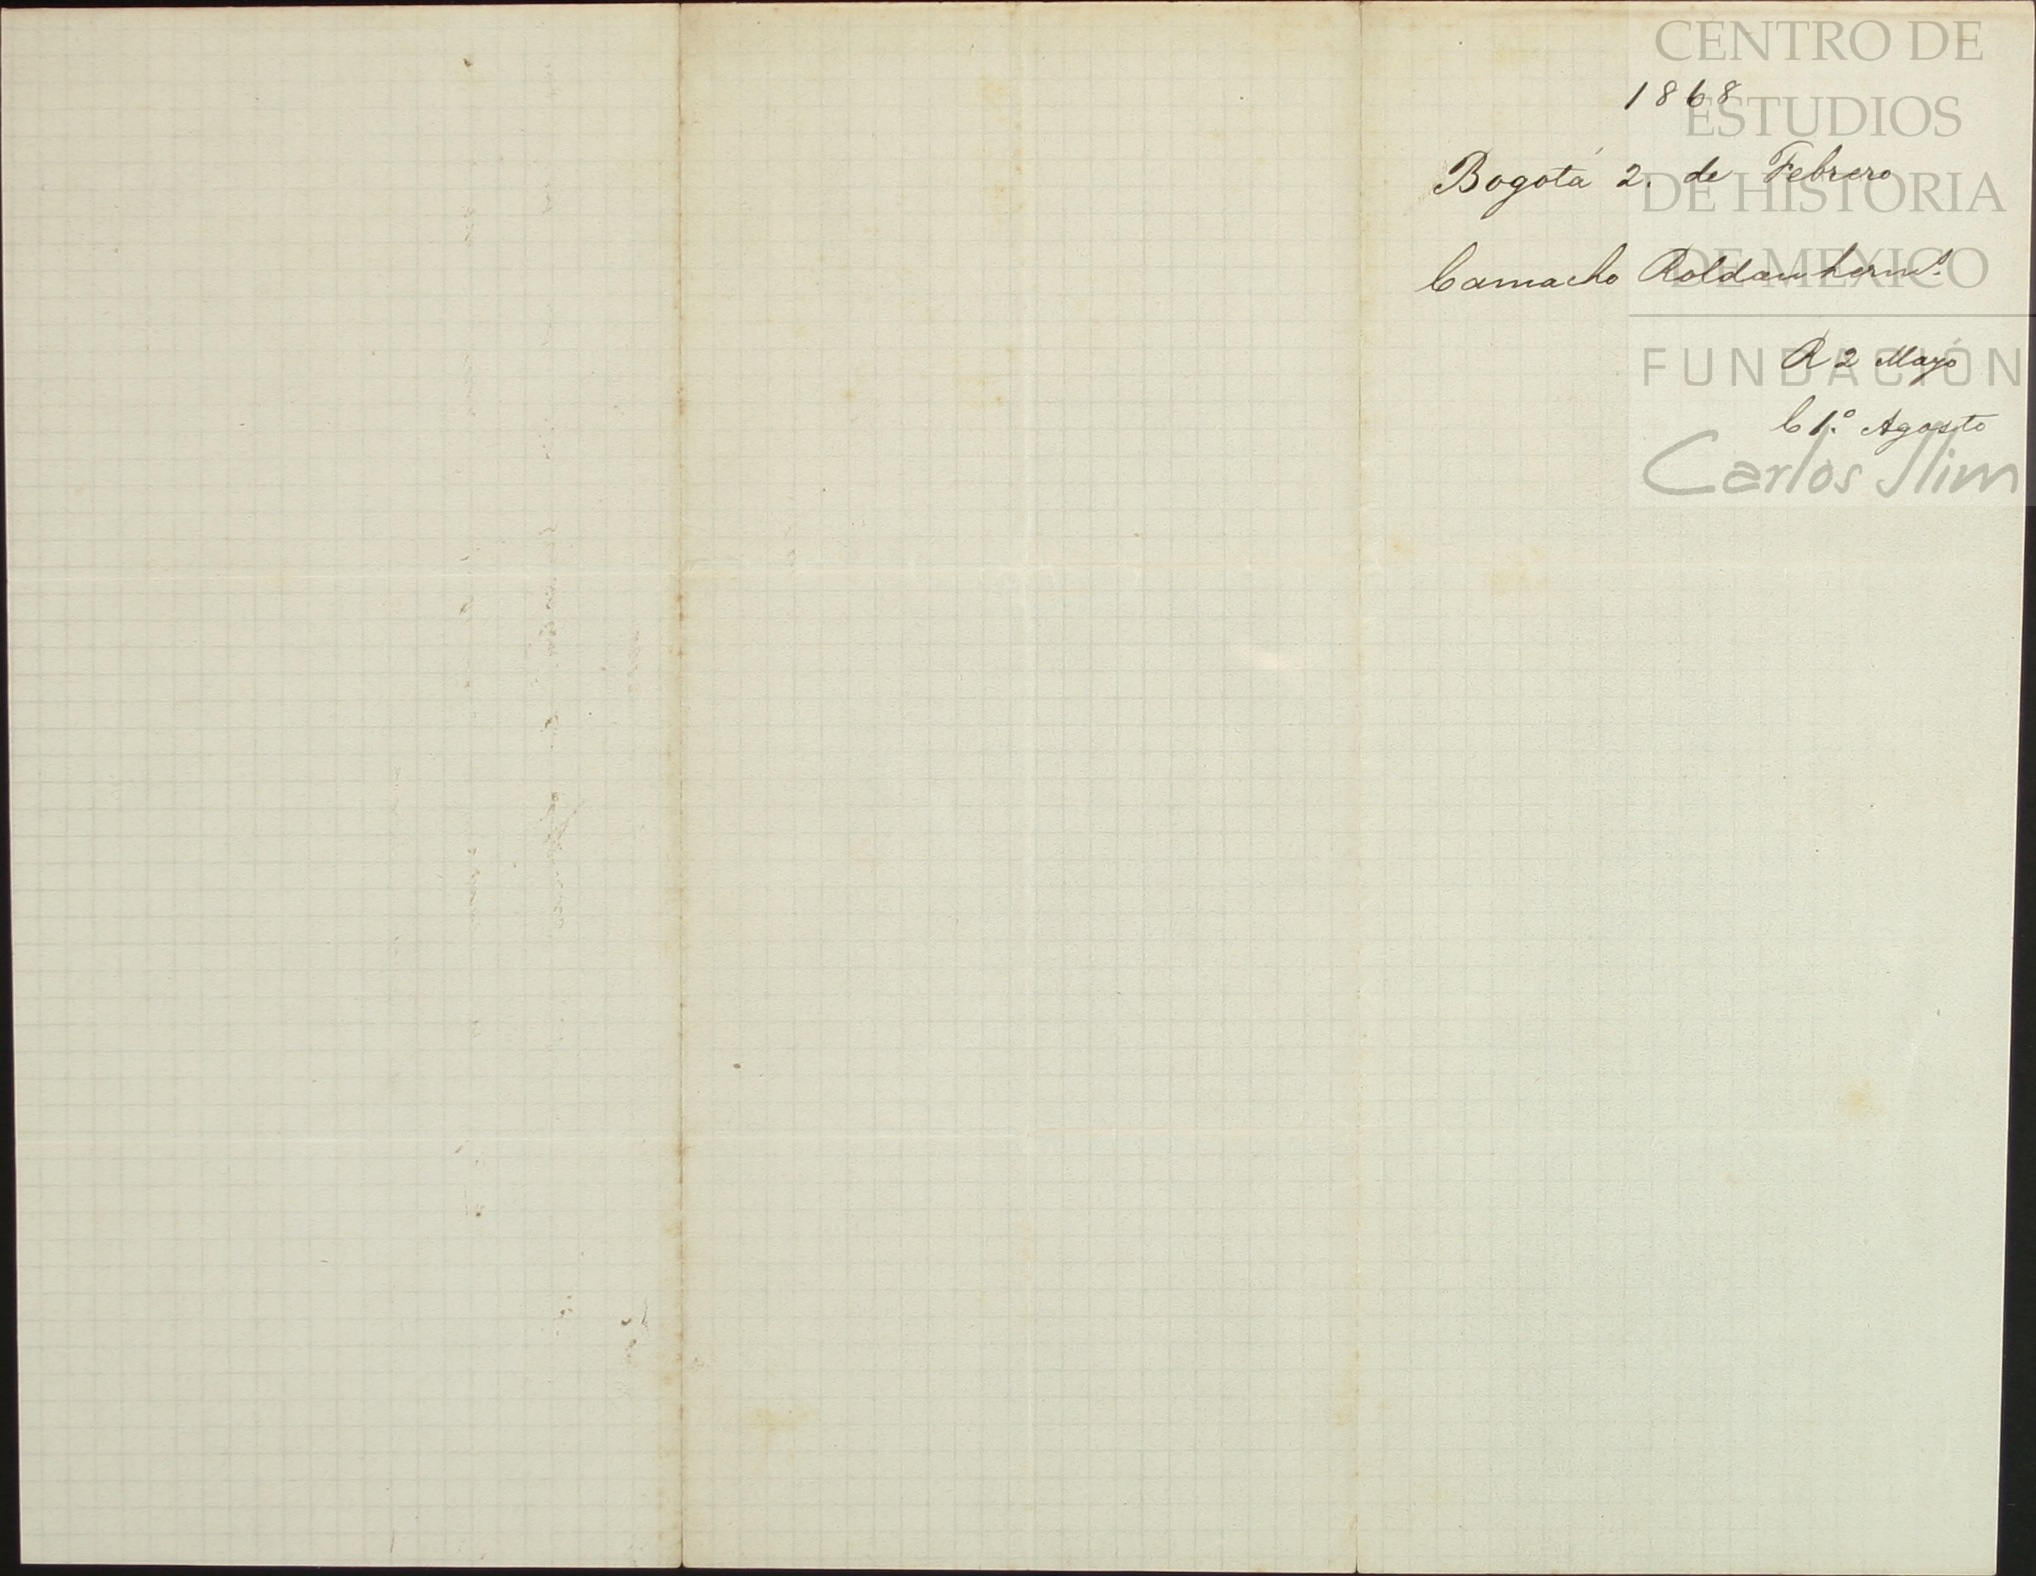 1868
Bogotá 2. de Febrero
Camacho Roldan herms.
R 2 Mayo
C 1.º Agosto
CENTRO DE
ESTUDIOS
DE HISTORIA
DE MEXICO
FUNDACIÓN
Carlos Slim